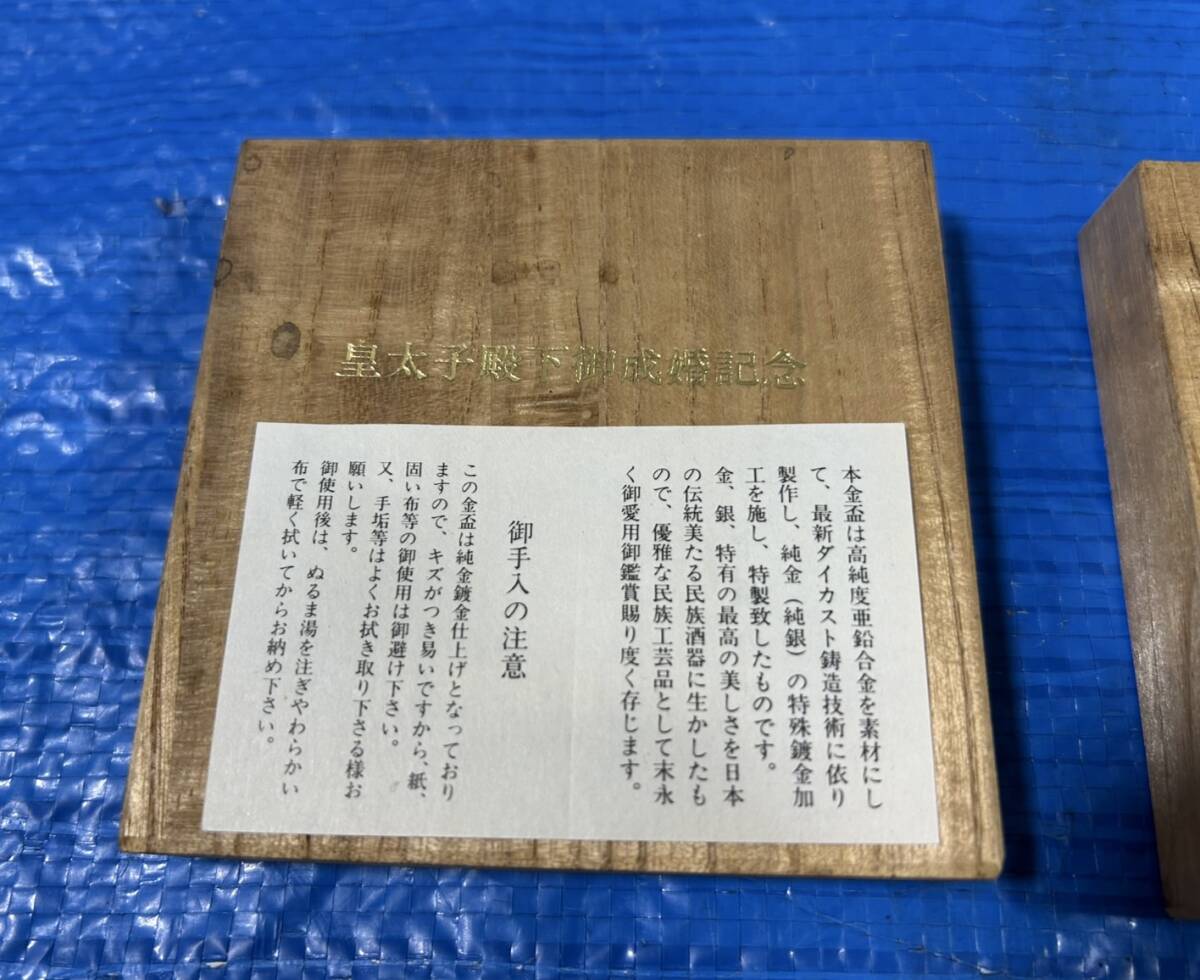 皇太子殿下御成婚記念
本金盃は高純度亜鉛合金を素材にし
て、最新ダイカスト鋳造技術に依り
製作し、純金（純銀）の特殊鍍金加
工を施し、特製致したものです。
金、銀、特有の最高の美しさを日本
の伝統美たる民族酒器に生かしたも
ので、優雅な民族工芸品として末永
く御愛用御鑑賞賜り度く存じます。
御手入の注意
この金盃は純金鍍金仕上げとなっており
ますので、キズがつき易いですから、紙、
固い布等の御使用は御避け下さい。
又、手垢等はよくお拭き取り下さる様お
願いします。
御使用後は、ぬるま湯を注ぎやわらかい
布で軽く拭いてからお納め下さい。